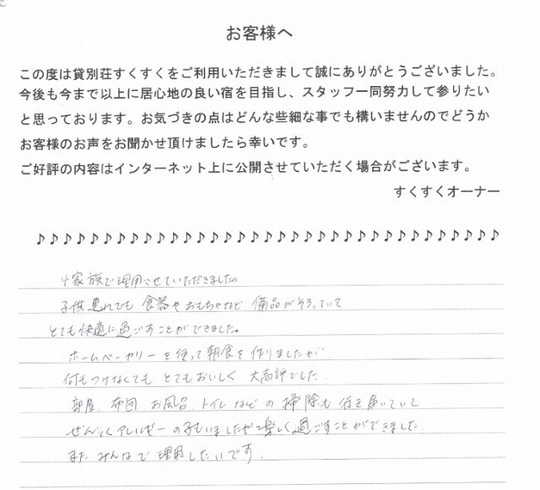 お客様へ
この度は貸別荘すくすくをご利用いただきまして誠にありがとうございました。
今後も今まで以上に居心地の良い宿を目指し、スタッフ一同努力して参りたい
と思っております。お気づきの点はどんな些細な事でも構いませんのでどうか
お客様のお声をお聞かせ頂けましたら幸いです。
ご好評の内容はインターネット上に公開させていただく場合がございます。
すくすくオーナー
♪♪♪♪♪♪♪♪♪♪♪♪♪♪♪♪♪♪♪♪♪♪♪♪♪♪♪♪♪♪♪♪♪♪♪
4家族で理用させていただきました。
子供連れでも 食器やおもちゃなど 備品がそろっていて
とても快適に過ごすことができました。
ホームベーカリーを使って朝食を作りましたが
何もつけなくても とてもおいしく 大高評でした
部屋、布団 お風呂、トイレなどの 掃除も 行き届いていて
ぜんそく アレルギーの子もいましたが 楽しく過ごすことができました
また みんなで 理用したいです。